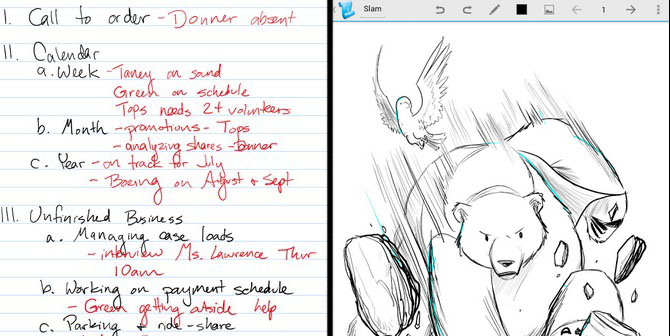 I. Call to order - Donner absent
II. Calendar
a. Week - Taney on sand
Green on schedule
Tops needs 2+ volunteers
b. Month - promotions - Tops
- analyzing shares - Donner
c. Year - on track for July
- Boeing on August + Sept
III. Unfinished Business
a. Managing case loads
- interview Ms. Lawrence Thur
10am
b. Working on payment schedule
- Green getting outside help
c. Parking + ride-share
Slam
1